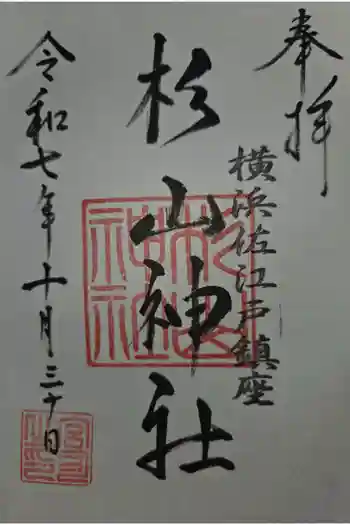 奉拝
横浜佐江戸鎮座
杉山神社
令和七年十月三十日
杉山神社